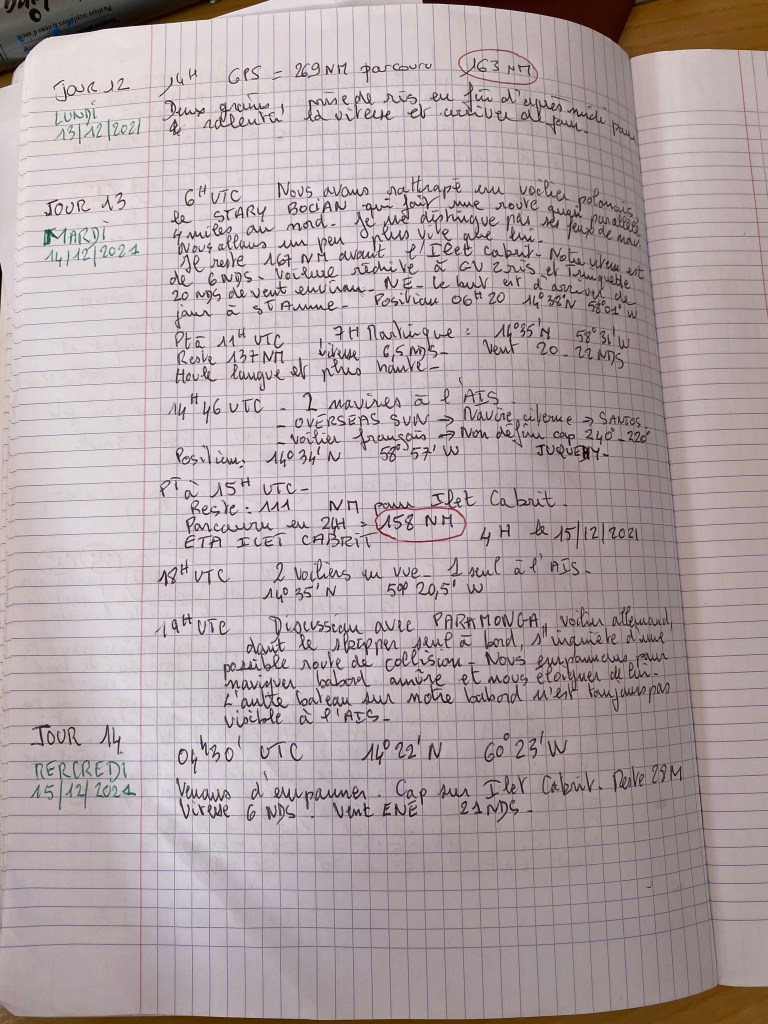 JOUR 12
14H GPS = 269 NM parcouru 163 NM
LUNDI
13/12/2021
Deux grains, prise de ris en fin d'après midi pour
ralentir la vitesse et arriver de jour.
JOUR 13
MARDI
14/12/2021
6H UTC Nous avons rattrapé un voilier polonais,
le STARY BOCIAN qui fait une route quasi parallèle
4 miles au nord. Je ne distingue pas ses feux de nav.
Nous allons un peu plus vite que lui.
Il reste 167 NM avant l'Ilet Cabrit. Notre vitesse est
de 6 NDS. Voilure réduite à GV 2 ris et Trinquette
20 NDS de vent environ. NE. Le but est d'arriver de
jour à St Anne. Position 06H20 14°38'N 58°01'W
Pt à 11H UTC 7H Martinique : 14°35'N 58°31'W
Reste 137 NM vitesse 6,5 NDS - Vent 20-22 NDS
Houle longue et plus haute -
14H46 UTC - 2 navires à l'AIS
- OVERSEAS SUN → Navire citerne → SANTOS
- voilier français → Non défini cap 240°-220°
Position, 14°34'N 58°57'W JUQUEHY-
PT à 15H UTC -
Reste : 111 NM pour Ilet Cabrit.
Parcouru en 24H = 158 NM
ETA ILET CABRIT 4H le 15/12/2021
18H UTC 2 voiliers en vue - 1 seul à l'AIS -
14°35'N 59°20,5'W
19H UTC Discussion avec PARAMONGA, voilier allemand,
dont le skipper seul à bord, s'inquiète d'une
possible route de collision - Nous empannons pour
naviguer babord amûre et nous éloigner de lui -
L'autre bateau sur notre babord n'est toujours pas
visible à l'AIS -
JOUR 14
RERCREDI
15/12/2021
04H30' UTC 14°22'N 60°23'W
Venons d'empanner. Cap sur Ilet Cabrit. Reste 29M
Vitesse 6 NDS. Vent ENE 21 NDS -